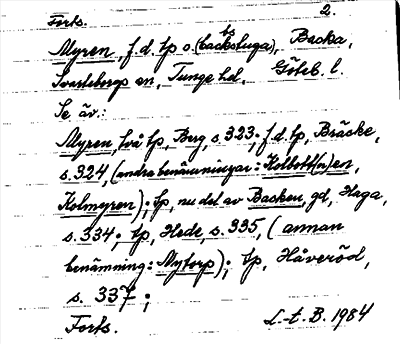 Forts. 2.
Myren, f.d. tp o. (backstuga), Backa,
bs
Svarteborgs sn, Tunge hd. Göteb. l.
Se äv.:
Myren, två tp, Berg, s. 323; f.d. tp, Bräcke,
s. 324, (andra benämningar: Kolbott(n)en,
Kolmyren); tp, nu del av Backen, gd, Haga,
s. 334; tp, Hede, s. 335, (annan
benämning: Mytorp); tp, Håveröd,
s. 337;
Forts. L-t. B. 1984